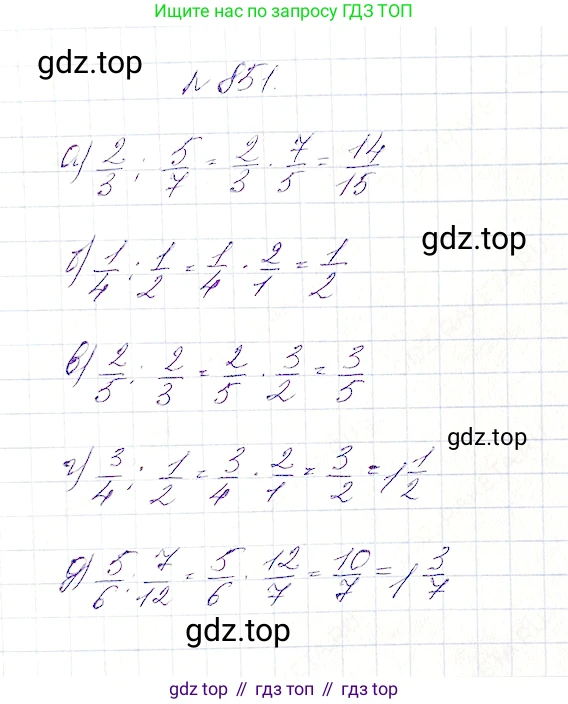 Ищите нас по запросу ГДЗ ТОП
gdz.top
№ 851.
а) 2/3 : 5/7 = 2/3 · 7/5 = 14/15
б) 1/4 : 1/2 = 1/4 · 2/1 = 1/2
gdz.top
в) 2/5 : 2/3 = 2/5 · 3/2 = 3/5
gdz.top
г) 3/4 : 1/2 = 3/4 · 2/1 = 3/2 = 1 1/2
д) 5/6 : 7/12 = 5/6 · 12/7 = 10/7 = 1 3/7
gdz.top
gdz top // гдз топ // gdz top